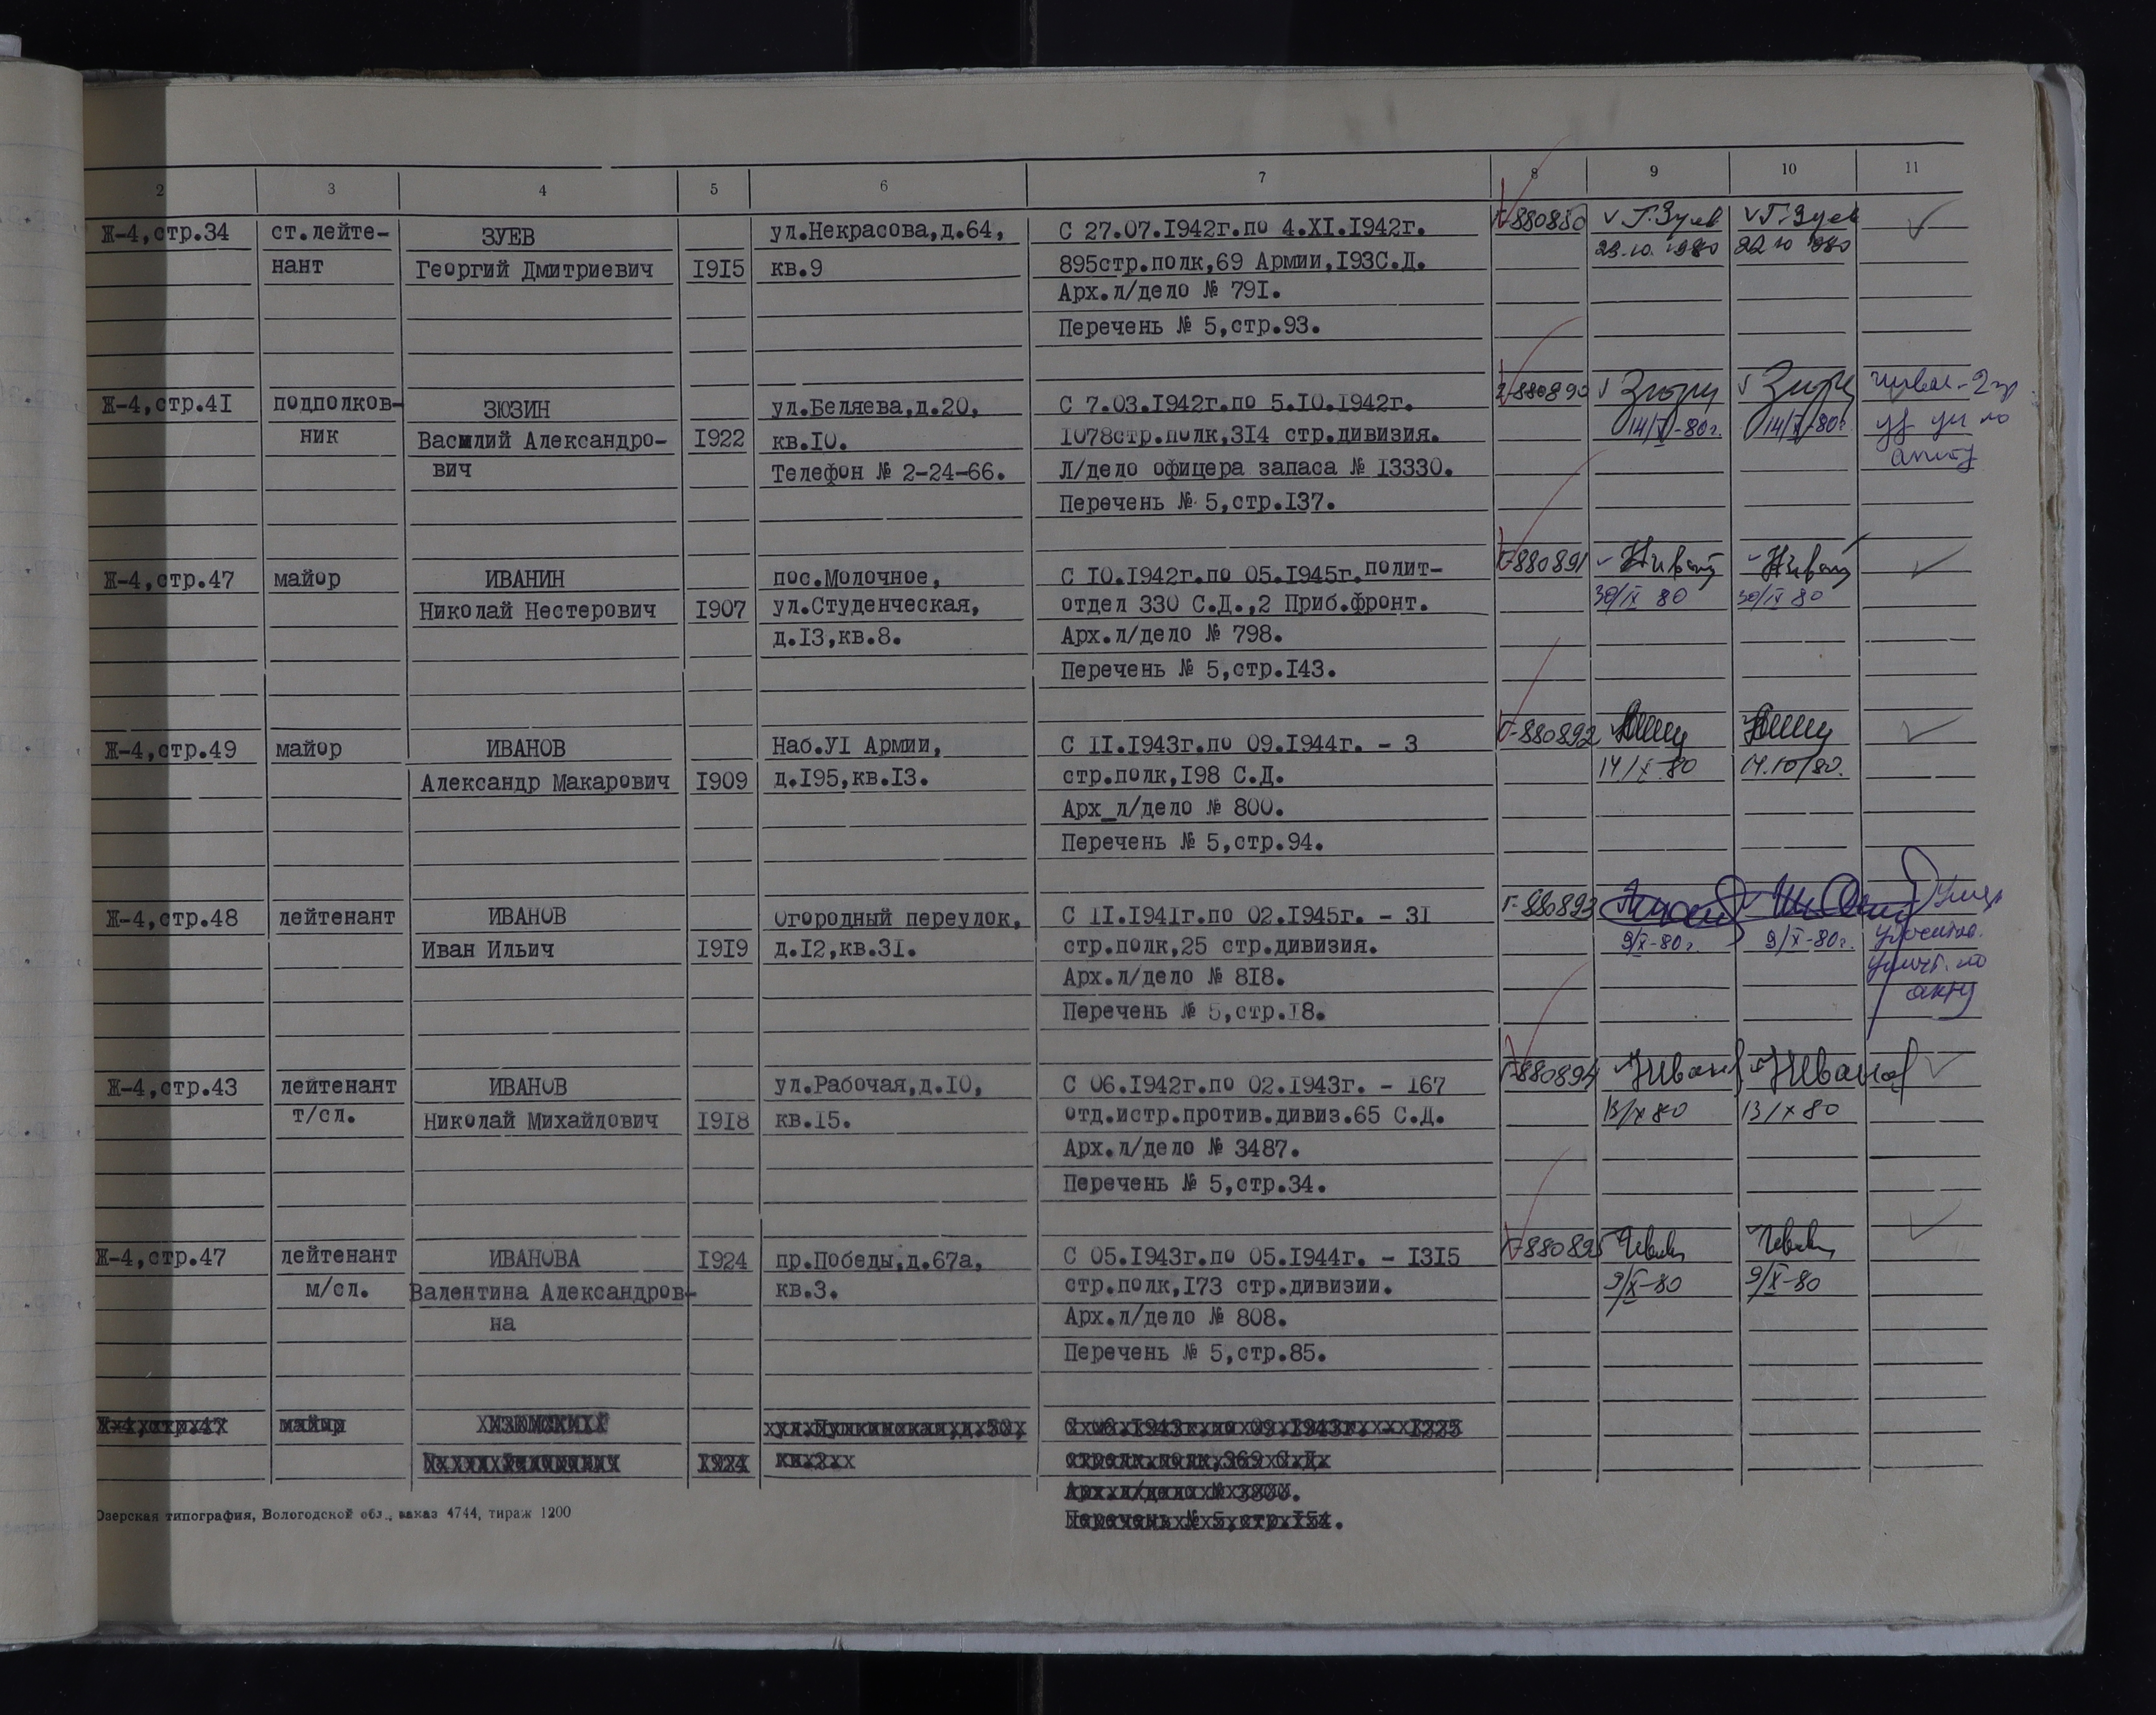 2 3 4 5 6 7 8 9 10 11
Ж-4,стр.34 ст.лейте- ЗУЕВ ул.Некрасова,д.64, С 27.07.1942г.по 4.XI.1942г. Г-880880 Г.Зуев Г.Зуев
нант Георгий Дмитриевич 1915 кв.9 895стр.полк,69 Армии,193С.Д. 22.10 1980
Арх.л/дело № 791.
Перечень № 5,стр.93.
Ж-4,стр.41 подполков- ЗЮЗИН ул.Беляева,д.20, С 7.03.1942г.по 5.10.1942г. Г-880890
ник Василий Александро- 1922 кв.10. 1078стр.полк,314 стр.дивизия. 14/X-80г. 14/X-80г.
вич Телефон № 2-24-66. Л/дело офицера запаса № 13330.
Перечень № 5,стр.137.
Ж-4,стр.47 майор ИВАНИН пос.Молочное, С 10.1942г.по 05.1945г.полит- Г-880891
Николай Нестерович 1907 ул.Студенческая, отдел 330 С.Д.,2 Приб.фронт. 30/IX 80 30/IX 80
д.13,кв.8. Арх.л/дело № 798.
Перечень № 5,стр.143.
Ж-4,стр.49 майор ИВАНОВ Наб.УI Армии, С 11.1943г.по 09.1944г. - 3 Г-880892
Александр Макарович 1909 д.195,кв.13. стр.полк,198 С.Д. 14/X-80 14.10/80.
Арх_л/дело № 800.
Перечень № 5,стр.94.
Ж-4,стр.48 лейтенант ИВАНОВ Огородный переулок, С 11.1941г.по 02.1945г. - 31 Г-880893
Иван Ильич 1919 д.12,кв.31. стр.полк,25 стр.дивизия. 9/X-80г. 9/X-80г.
Арх.л/дело № 818.
Перечень № 5,стр.18. акту
Ж-4,стр.43 лейтенант ИВАНОВ ул.Рабочая,д.10, С 06.1942г.по 02.1943г. - 167 Г-880894 НИванов НИванов
т/сл. Николай Михайлович 1918 кв.15. отд.истр.против.дивиз.65 С.Д. 13/X 80 13/X 80
Арх.л/дело № 3487.
Перечень № 5,стр.34.
Ж-4,стр.47 лейтенант ИВАНОВА 1924 пр.Победы,д.67а, С 05.1943г.по 05.1944г. - 1315 Г-880895
м/сл. Валентина Александров- кв.3. стр.полк,173 стр.дивизии. 9/X-80 9/X-80
на Арх.л/дело № 808.
Перечень № 5,стр.85.
Ж-4,стр.47 майор ул.Пушкинская,д.50, 1225
1924 кв.2 стрелк.полк,369 С.Д.
Арх.л/дело № 3800.
Перечень № 5,стр.154.
Озерская типография, Вологодской обл., заказ 4744, тираж 1200